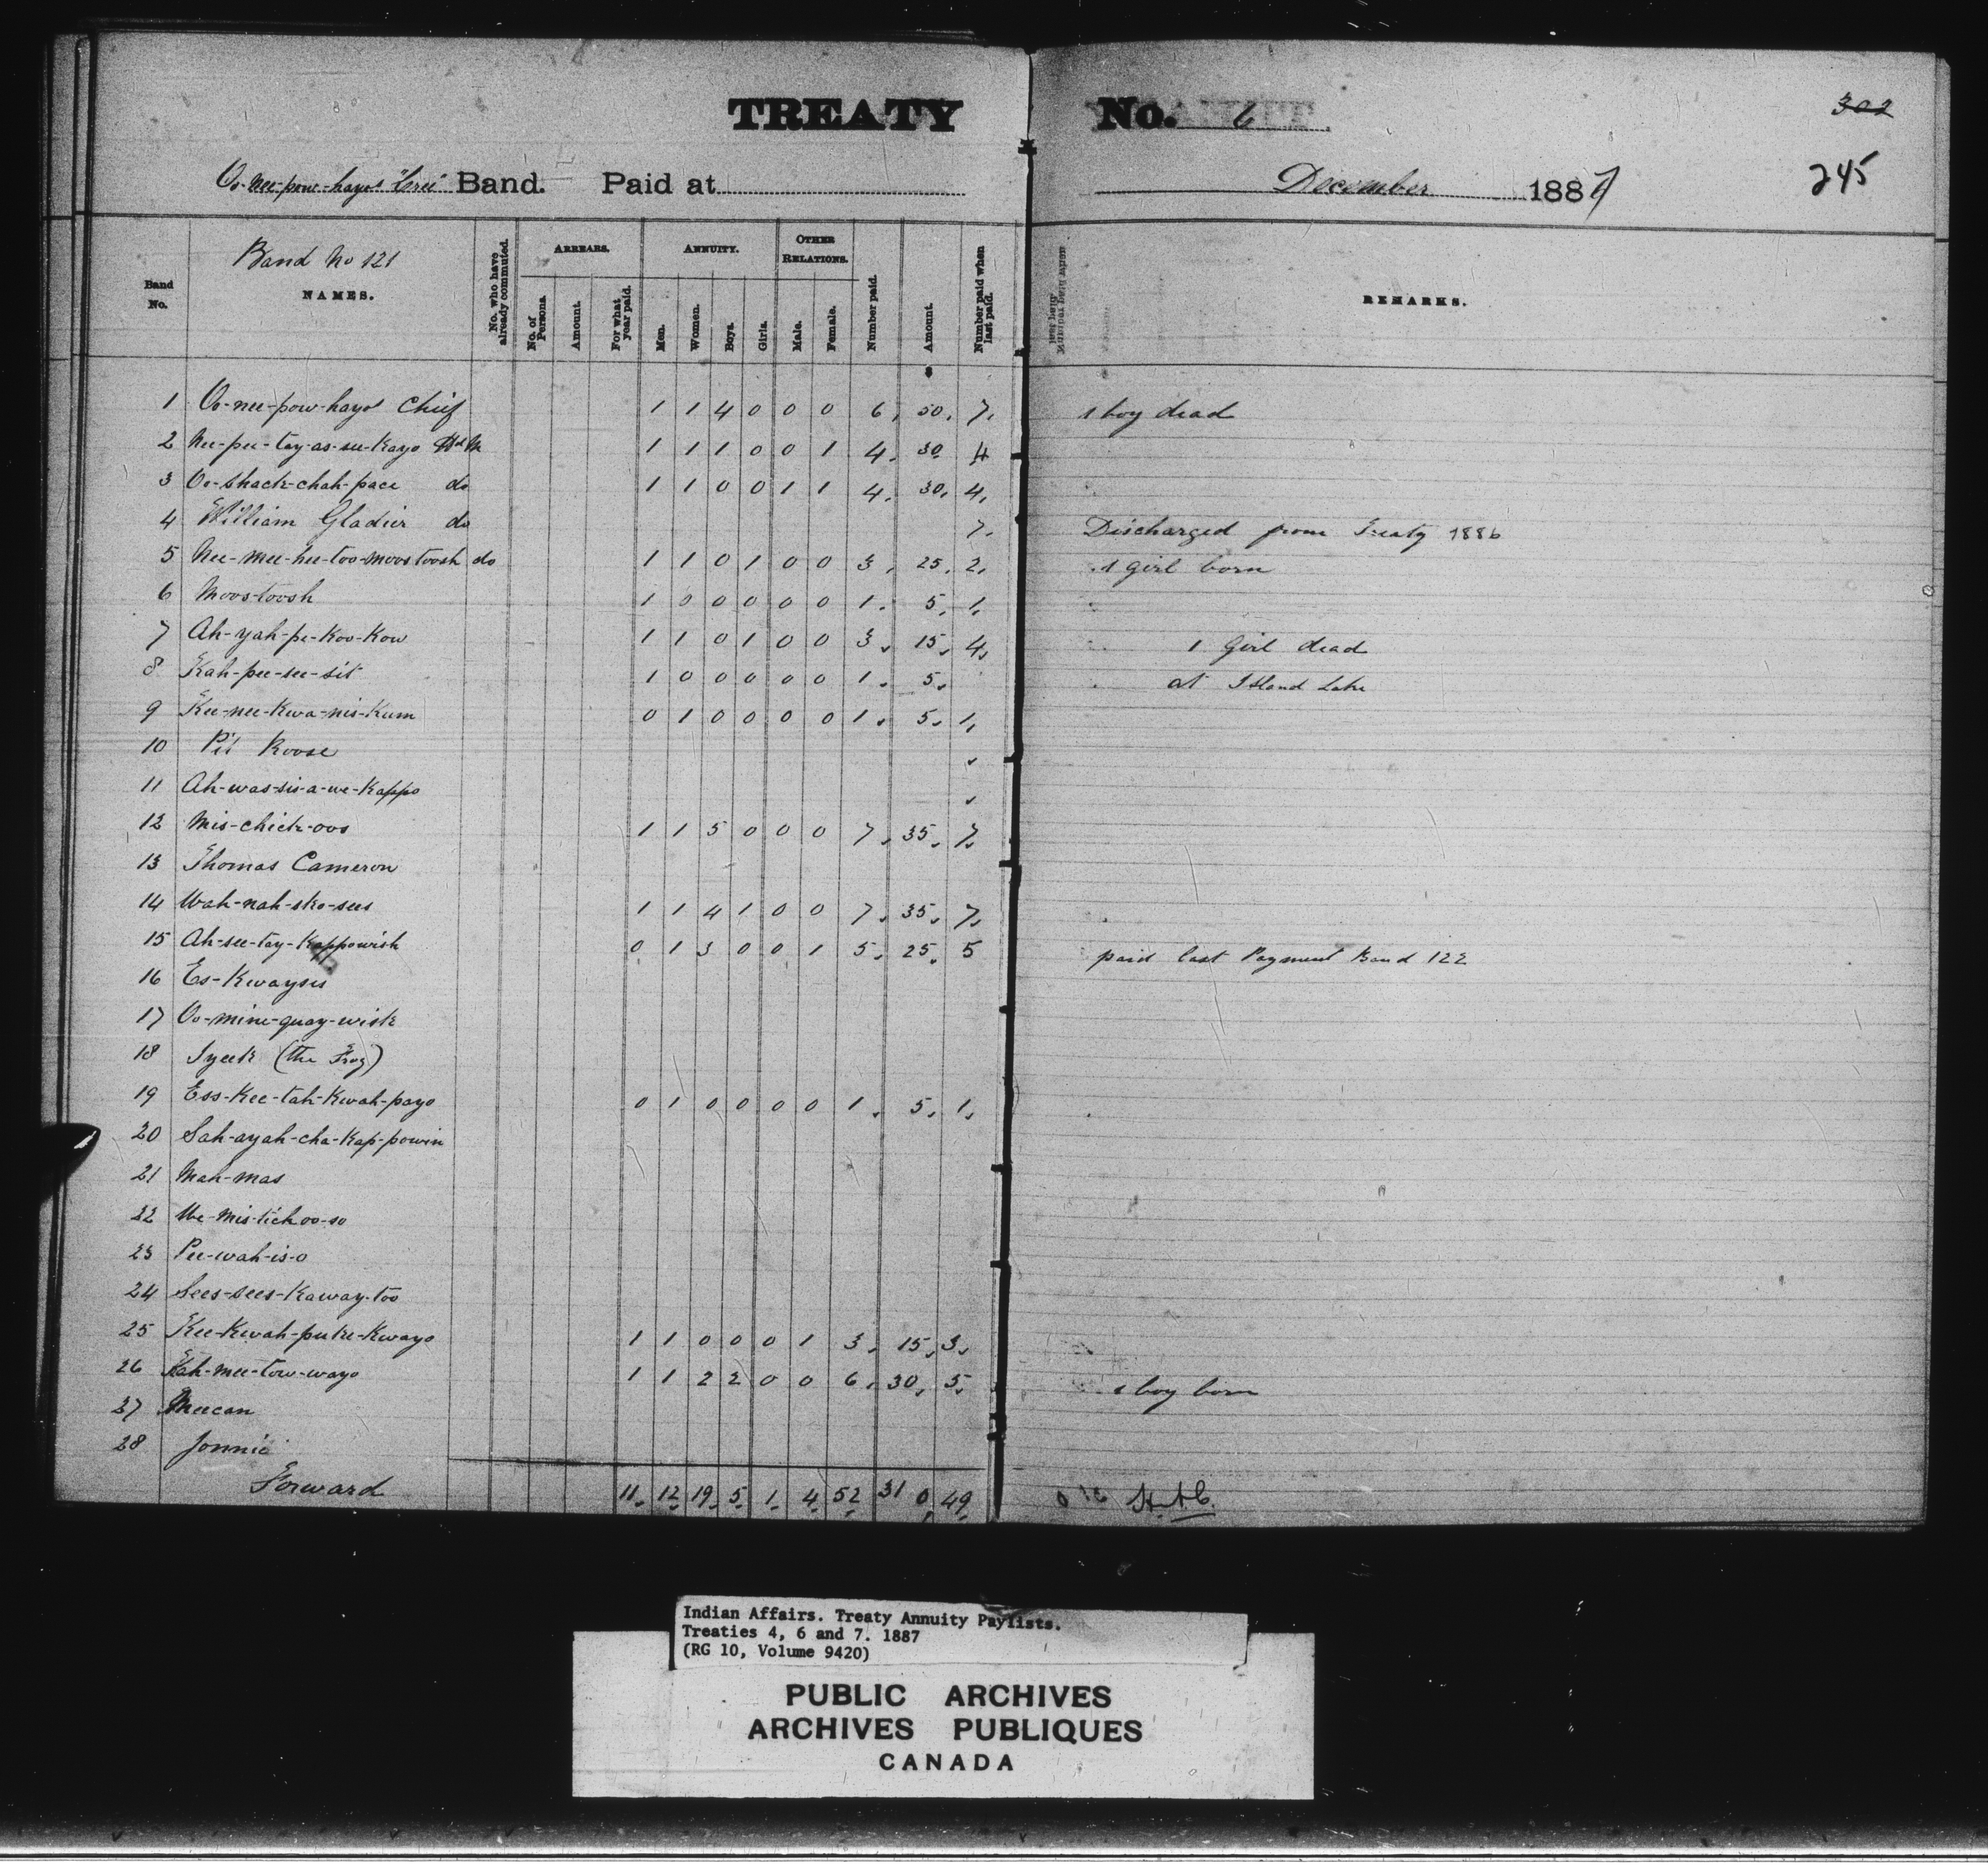 TREATY No. 6
302
Oo-nee-pow-hayo's "Cree" Band. Paid at December 1887
245
Band No. Band No 121 NAMES. No. who have already commuted. ARREARS. No. of Persons. Amount. For what year paid. ANNUITY. Men. Women. Boys. Girls. OTHER RELATIONS. Male. Female. Number paid. Amount. Number paid when last paid. REMARKS.
1 Oo-nee-pow-hayo Chief 1 1 4 0 0 0 6. 50. 7. 1 boy dead
2 Nee-pee-tay-as-su-Kayo Hd M 1 1 1 0 0 1 4. 30 4
3 Oo-shack-chah-pace do 1 1 0 0 1 1 4. 30. 4.
4 William Gladieu do 7. Discharged from Treaty 1886
5 Nee-mee-hee-too-moostoosh do 1 1 0 1 0 0 3. 25. 2. 1 girl born
6 Moostoosh 1 0 0 0 0 0 1. 5. 1.
7 Ah-yah-pe-Koo-Kow 1 1 0 1 0 0 3. 15. 4. 1 Girl dead
8 Kah-pee-see-sit 1 0 0 0 0 0 1. 5. at Island Lake
9 Kee-nee-Kwa-nis-Kum 0 1 0 0 0 0 1. 5. 1.
10 Pit Roose
11 Ah-was-sis-a-we-Kappo
12 Mis-chick-oos 1 1 5 0 0 0 7. 35. 7.
13 Thomas Cameron
14 Wah-nah-sko-sees 1 1 4 1 0 0 7. 35. 7.
15 Ah-see-tay-Kappowish 0 1 3 0 0 1 5. 25. 5 paid last Payment Band 122
16 Es-Kwaysis
17 Oo-mine-quay-wisk
18 Iyeek (the Frog)
19 Ess-Kee-tah-Kwah-payo 0 1 0 0 0 0 1. 5. 1.
20 Sah-ayah-cha-Kap-powin
21 Mah-mas
22 We-mis-tichoo-so
23 Pee-wah-is-o
24 Sees-sees-Kaway-too
25 Kee-Kwah-puke-Kwayo 1 1 0 0 0 1 3. 15. 3.
26 Kah-mee-tow-wayo 1 1 2 2 0 0 6. 30. 5. 1 boy born
27 Meecan
28 Jonnie
Forward 11. 12. 19. 5. 1. 4. 52 31 0 49.
Indian Affairs. Treaty Annuity Paylists.
Treaties 4, 6 and 7. 1887
(RG 10, Volume 9420)
PUBLIC ARCHIVES
ARCHIVES PUBLIQUES
CANADA